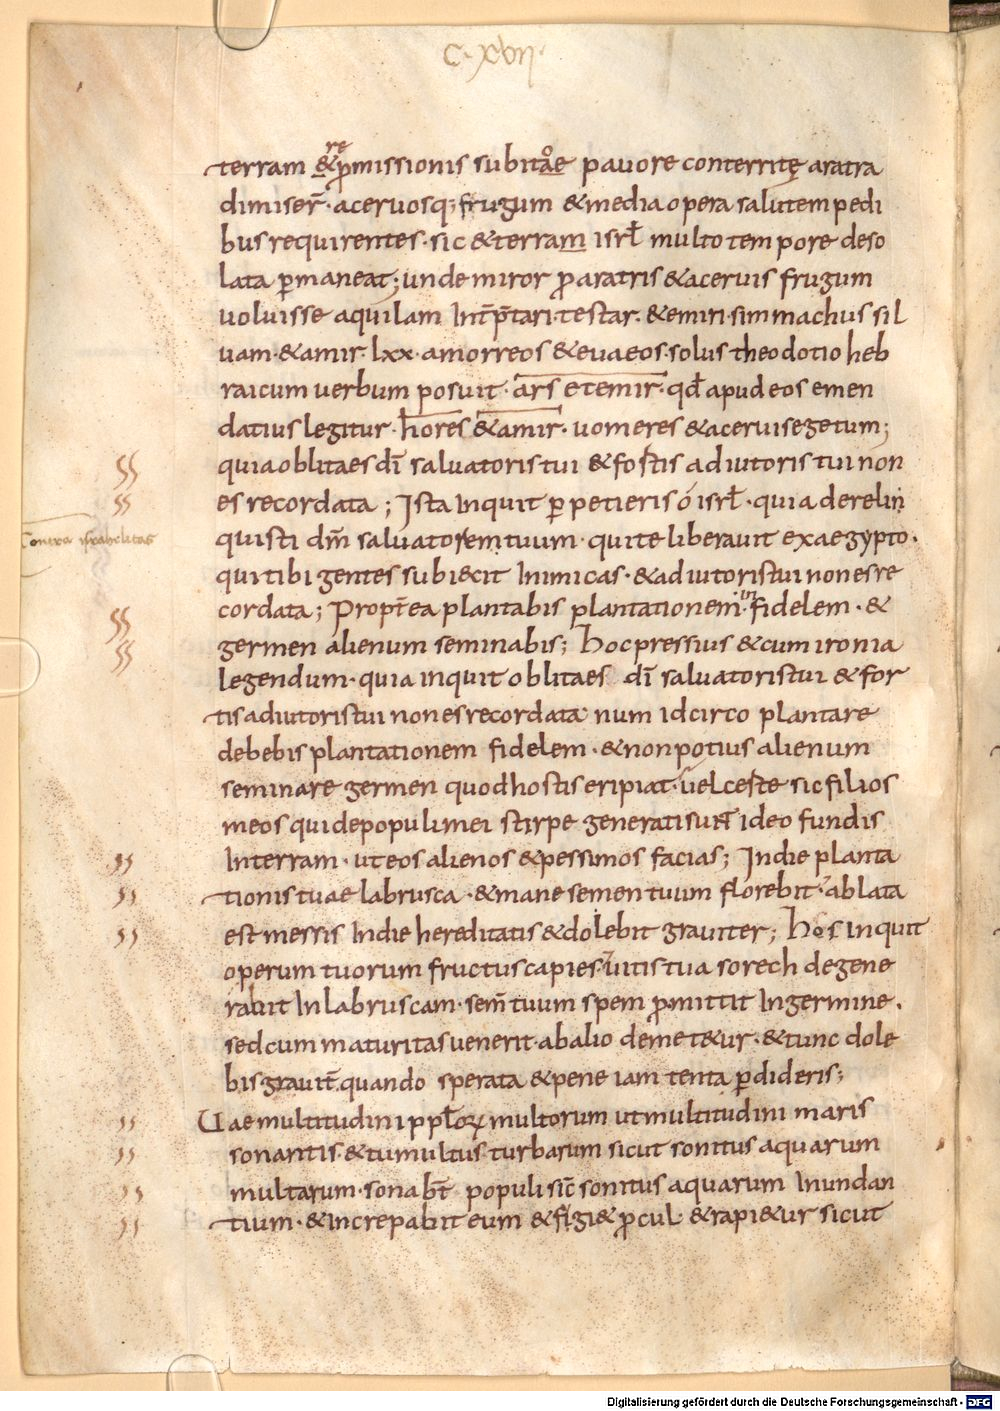 C. xvii.
re
terram & p̄missionis subitaoe pauore conterritę aratra
dimiser̄· aceruosq; frugum & media opera salutem pedi
bus requirentes· sic & terram isrł multo tempore deso
lata p̄maneat; unde miror p̄ aratris & aceruis frugum
uoluisse aquilam int̄p̄tari· testar· & emiri· simmachus sil
uam· & amir· lxx· amorreos & euaeos· solus theodotio heb
raicum uerbum posuit· ars etemir· qđ apud eos emen
datius legitur· hores & amir· uomeres & acerui segetum;
quia oblita es dī saluatoris tui & fortis adiutoris tui non
es recordata; Ista inquit perpetieris ó isrł· quia derelin
quisti dm̄ saluatorem tuum· qui te liberauit ex aegypto·
Contra israhelitas
qui tibi gentes subiecit inimicas· & adiutoris tui non es re
cordata; Propt̄ea plantabis plantationem· in fidelem· &
germen alienum seminabis; Hoc pressius & cum ironia
legendum· quia inquit oblita es dī saluatoris tui & for
tis adiutoris tui non es recordata· num idcirco plantare
debebis plantationem fidelem· & non potius alienum
seminare germen quod hostis eripiat· uel certe sic filios
meos qui de populi mei stirpe generati sunt ideo fundis
in terram· ut eos alienos & pessimos facias; In die planta
tionis tuae labrusca· & mane semen tuum florebit· ablata
est messis in die hereditatis & dolebit grauiter; Hos inquit
operum tuorum fructus capies· uitis tua sorech degene
rabit in labruscam· sem̄ tuum spem p̄mittit in germine.
sed cum maturitas uenerit· ab alio demet&ur· & tunc dole
bis grauit̄ quando sperata & pene iam tenta p̄dideris;
Uae multitudini ppłoꝝ multorum ut multitudini maris
sonantis· & tumultus turbarum sicut sonitus aquarum
multarum· sonab̄t populi sic̄ sonitus aquarum inundan
tium· & increpabit eum & fugi& p̄cul· & rapi&ur sicut
Digitalisierung gefördert durch die Deutsche Forschungsgemeinschaft - DFG